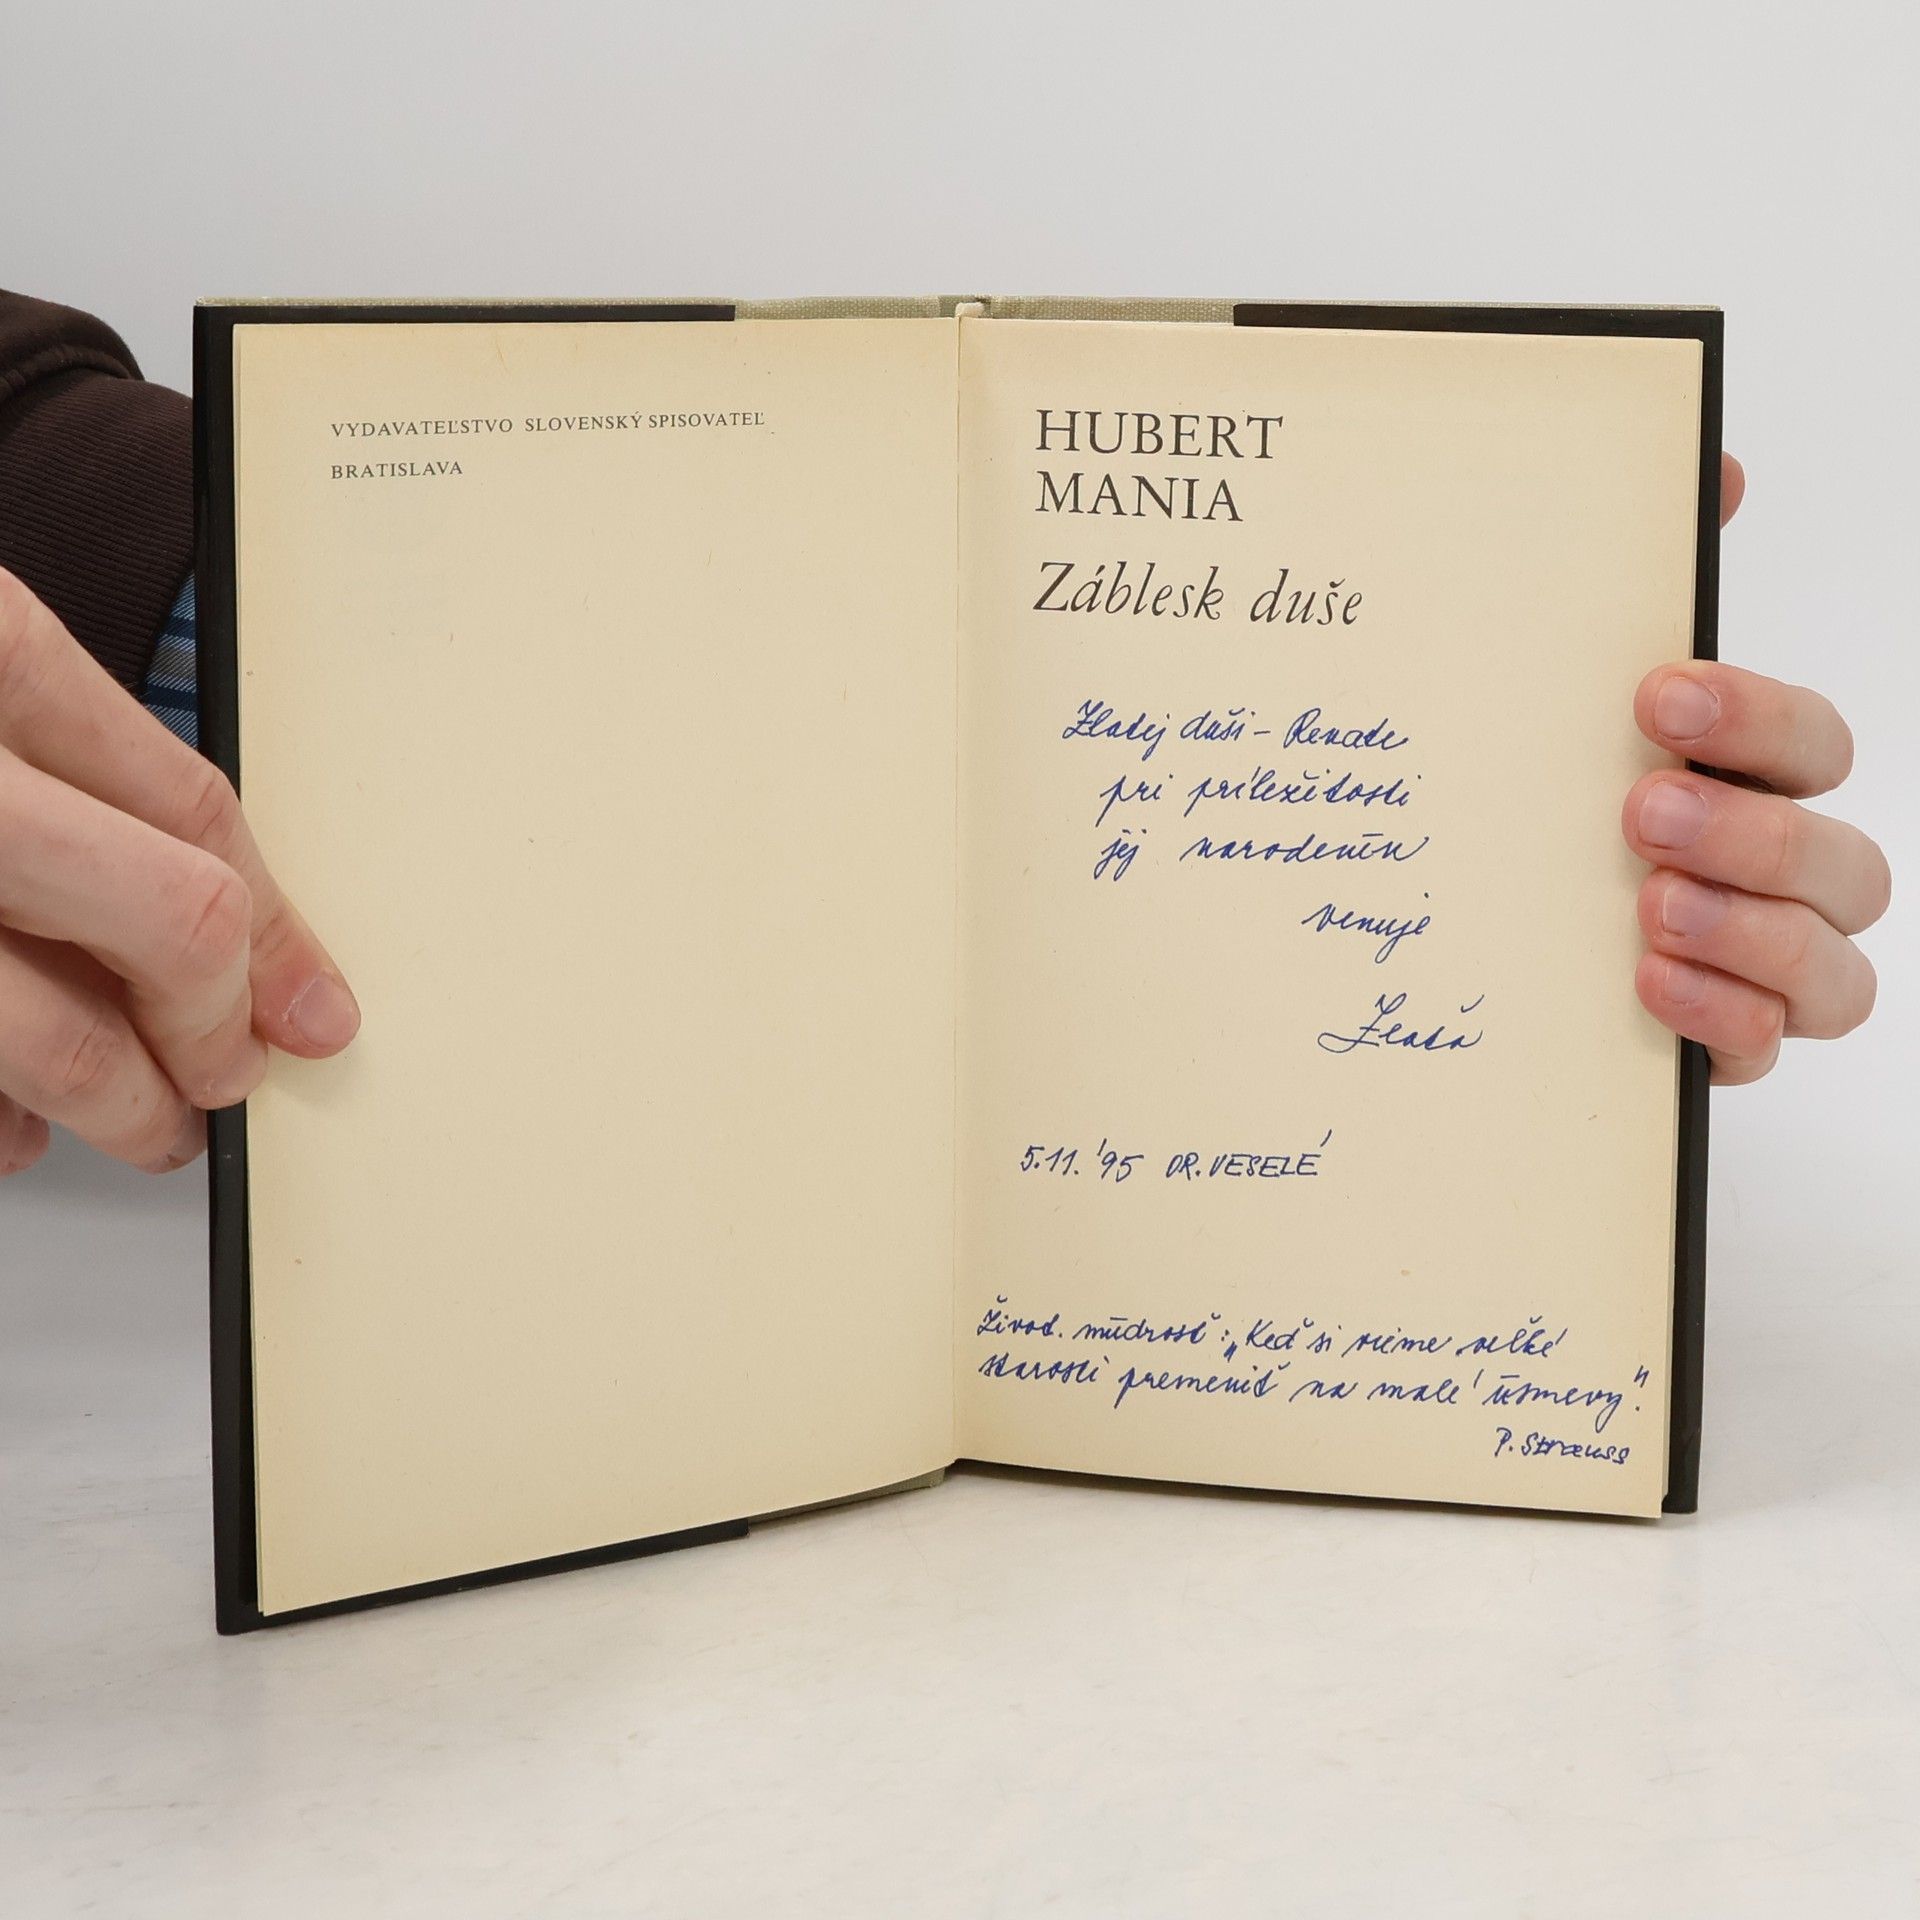 VYDAVATEĽSTVO SLOVENSKÝ SPISOVATEĽ
BRATISLAVA
HUBERT
MANIA
Záblesk duše
Zlatej duši – Renate
pri príležitosti
jej narodenín
venuje
Zlata
5.11. '95 DR. VESELÉ
Život. múdrosť: „Keď si vieme veľké
starosti premeniť na malé úsmevy".
P. Strauss